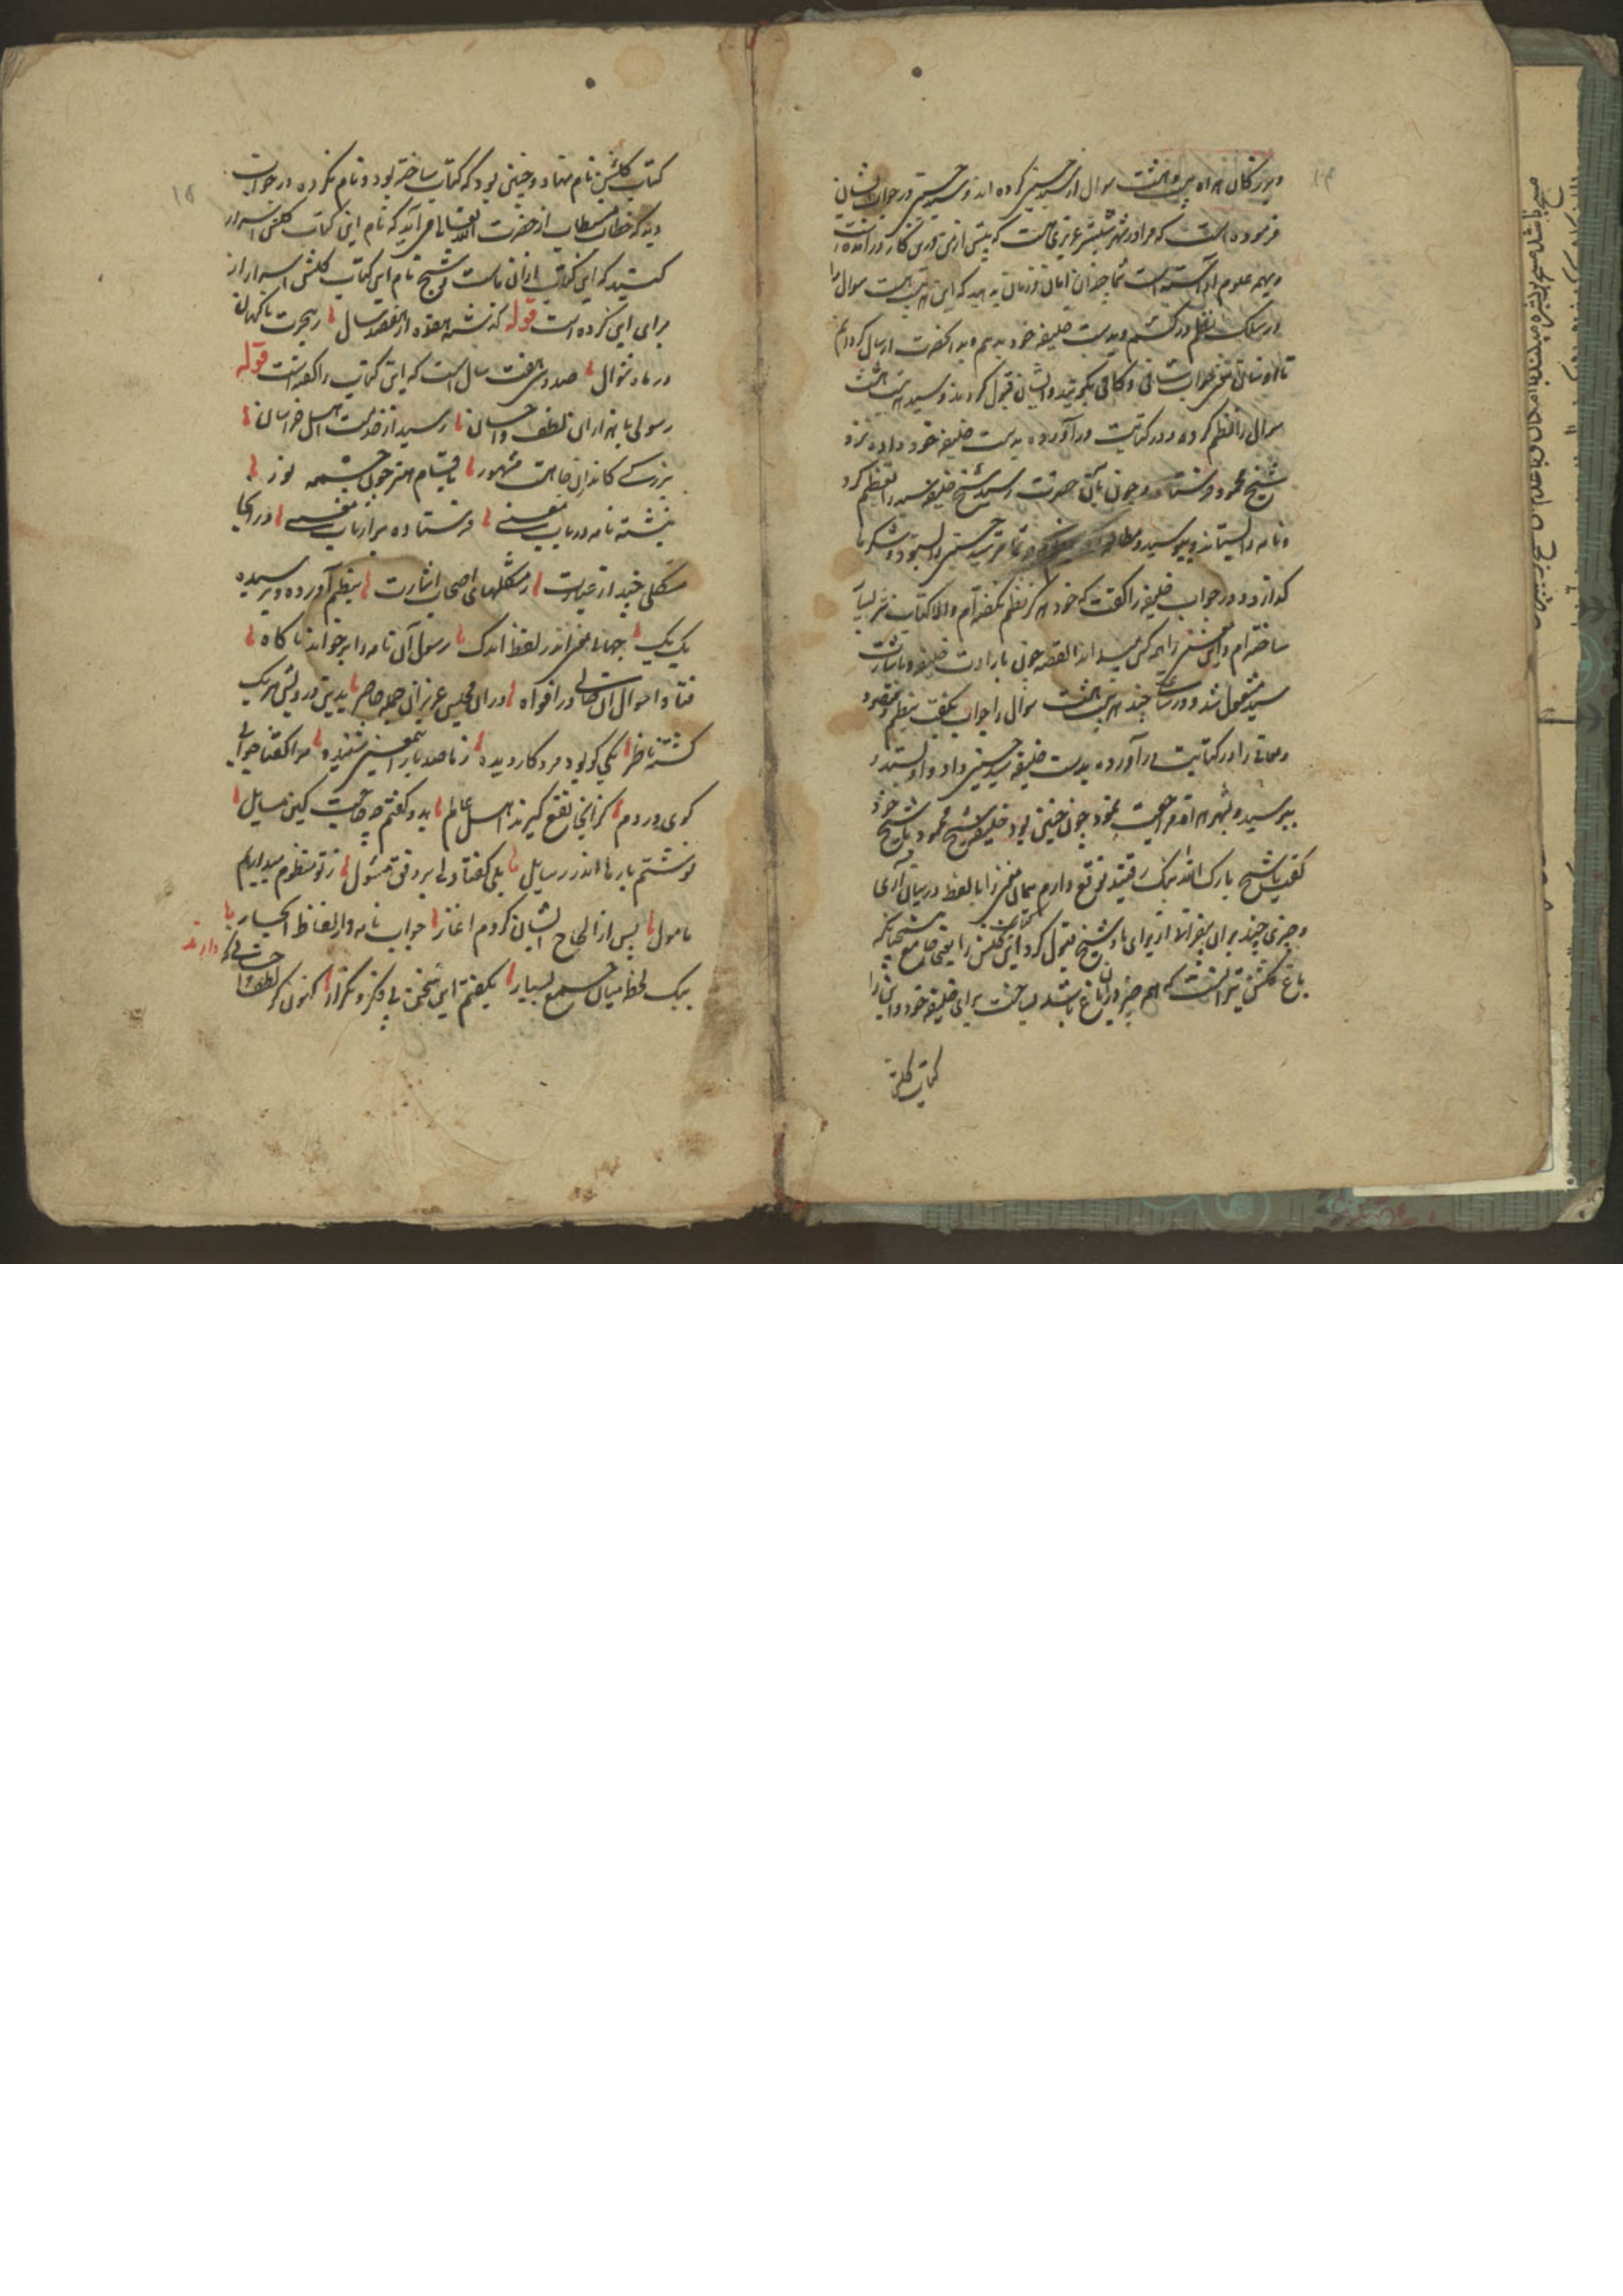 وبزرگان هراه بیست و هشت سوال از سید حسینی کرده اند و سید حسینی در جواب ایشان
فرموده است که مرا در شهر شبستر عزیزی هست که پیش ازین درین کار در آمده است
وبهمه علوم آراسته است شما چندان امان و زمان بدهید که این بیست و هشت سوال را
در سلک نظم در کشم و بدست خلیفه خود بدهم و بدان حضرت ارسال گردانم
تا او شما را جواب شافی و کافی بگوید و ایشان قبول کردند و سید بیست و هشت
سوال را نظم کرد و در کتابت در آورده بدست خلیفه خود داده نزد
شیخ محمود فرستاد و چون بآن حضرت رسید شیخ خلیفه سید را تعظیم کرد
و نامه را بستاند و ببوسید و مطالعه سید حسینی را بستود و شکرها
گذارد و در جواب خلیفه را گفت که خود هرگز نظم نگفته‌ام والا کتاب نثر بسیار
ساخته‌ام و این سخن را همه کس میداند القصه چون بارادت خلیفه و باشارت
سید مشغول شد و در ساعت چند بیست و هشت سوال را جواب گفت بنظم و مقصود
و معانی را در کتابت در آورده بدست خلیفه سید حسینی داد و او بستد و
ببوسید و بشهر هراة مراجعت نمود چون چنین بود خلیفه شیخ محمود با شیخ خود
گفت یا شیخ بارک الله نیک رفتید توقع دارم همان معنی را با لفظ در بیان آری
و چیزی چند بران بیفزا از برای ما و شیخ قبول کرد و این کتاب گلشن را یعنی جامع همچنانکه
باغ گلشن بی‌رنجست که همه چیز در آن باغ باشد بساخت برای خلیفه خود و این را
کتاب گلشن
کتاب گلشن نام نهاد و چنین بود که کتاب ساخته بود و نام نکرده در خواب
دید که خطاب مستطاب از حضرت الله تعالی می آید که نام این کتاب گلشن اسرار
کنید که این کتاب ازان ماست و شیخ نام این کتاب گلشن اسرار از
برای این کرده است قوله گذشته هفده از هفتصد سال ز هجرت ناگهان
در ماه شوال صد و هفت سال است که این کتاب را گفته است قوله
رسولی با هزاران لطف و احسان رسید از خدمت اهل خراسان
بزرگی کاندران جا هست مشهور باقسام هنر چون چشمه نور
نبشته نامه در باب معنی فرستاده بر ارباب معنی در آنجا
مشکلی چند از عبارت ز مشکلهای اصحاب اشارت بنظم آورده و پرسیده
یک یک جهان معنی اندر لفظ اندک رسول آن نامه را بر خواند ناگاه
فتاد احوال آن حالی در افواه در ان مجلس عزیزان جمله حاضر بدین درویش هر یک
گشته ناظر یکی کو بود مرد کار دیده ز ما صد بار این معنی شنیده مرا گفتا جوابی
گوی در دم کز اینجا نفع گیرند اهل عالم بدو گفتم چه حاجت کین مسایل
نوشتم بارها اندر رسایل بلی گفتا ولی بر وفق مسئول ز تو منظوم میداریم
مامول پس از الحاح ایشان کردم آغاز جواب نامه در الفاظ ایجاز
بیک لحظه میان جمع بسیار بگفتم این سخن بی فکر و تکرار کنون از لطف و احسانی که دارند